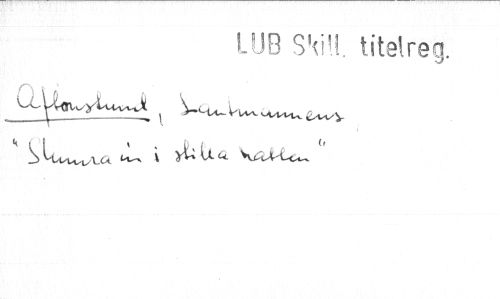 LUB Skill. titelreg.
Aftonstund, Lantmannens
"Slumra in i stilla natten"